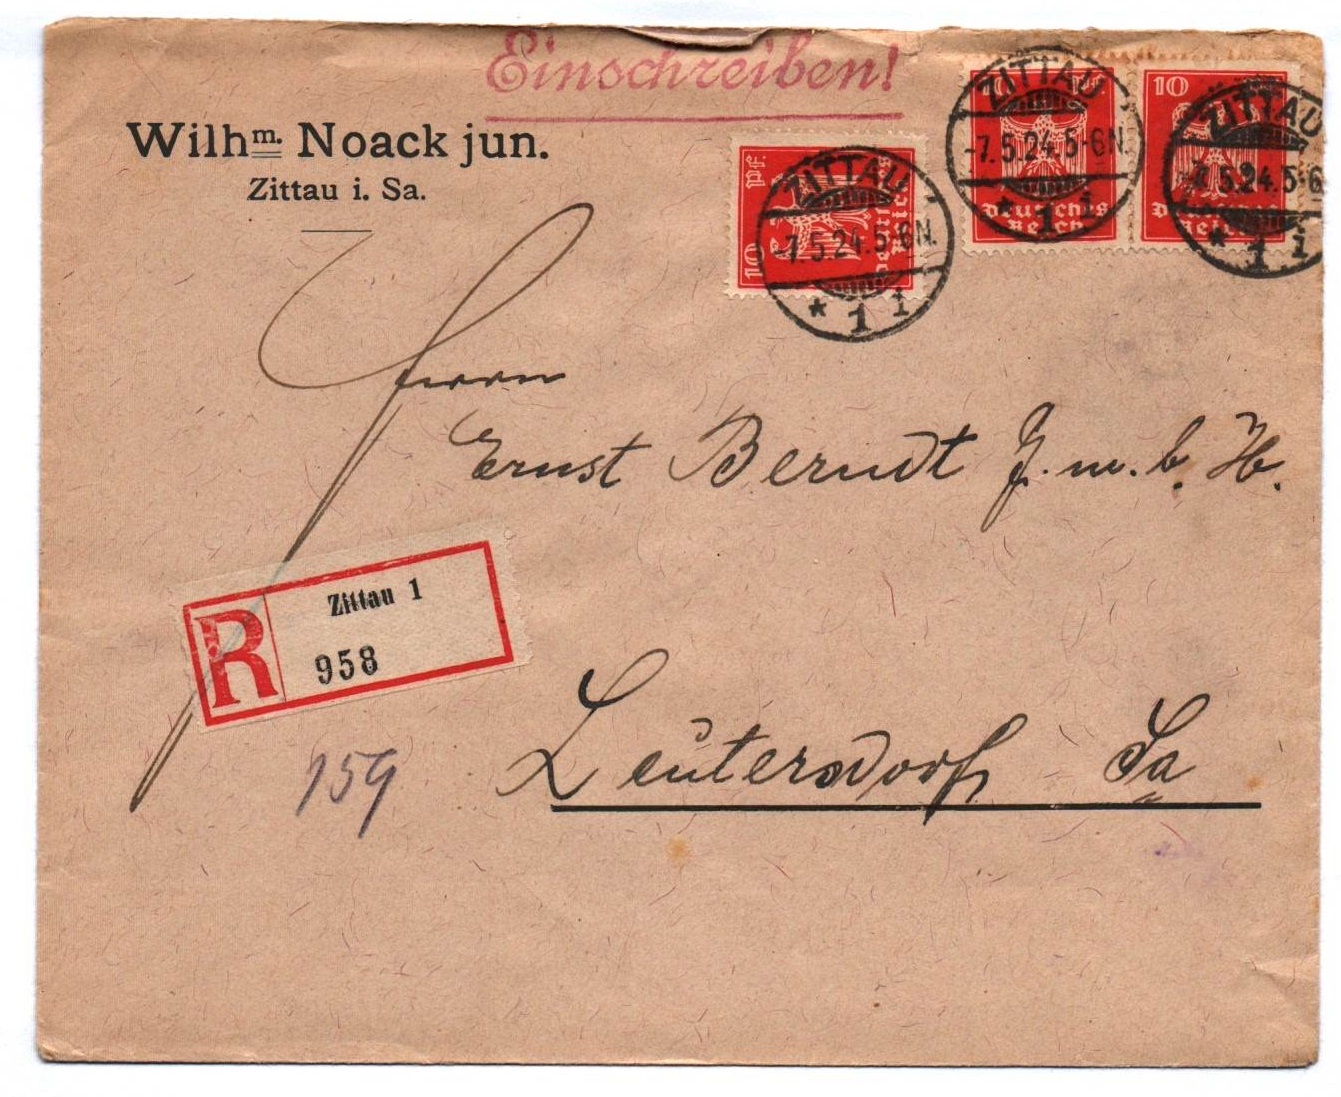 Einschreiben!
Wilhm. Noack jun.
Zittau i. Sa.
10 Pf. Deutsches Reich
ZITTAU
-7.5.24.5-6N.
* 1 i
10 Deutsches Reich
ZITTAU
-7.5.24.5-6N.
* 1 i
10 Reich
ZITTAU
7.5.24.5-6
* 1 i
Herrn
Ernst Berndt G. m. b. H.
R
Zittau 1
958
Leutersdorf Sa
159